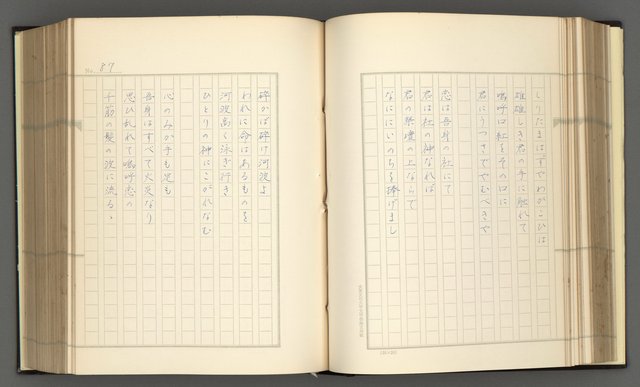 しりたまはずやわがこひは
雄雄しき君の手に触れて
嗚呼口紅をその口に
君にうつさでやむべきや
恋は吾身の社にて
君は社の神なれば
君の祭壇の上ならで
なにゝいのちを捧げまし
No. 87
砕かば砕け河波よ
われに命はあるものを
河波高く泳ぎ行き
ひとりの神にこがれなむ
心のみか手も足も
吾身はすべて火炎なり
思ひ乱れて嗚呼恋の
千筋の髪の波に流るゝ